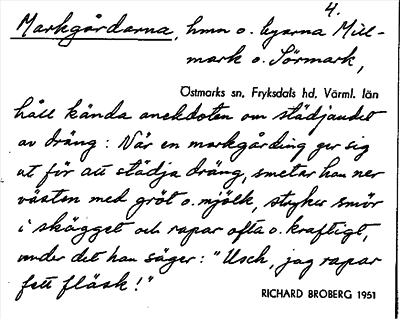 4.
Markgårdarna, hmn o. byarna Mull-
mark o. Sörmark,
Östmarks sn, Fryksdals hd, Värml. län
håll kända anekdoten om städjandet
av dräng: När en markgårding ger sig
ut för att städja dräng, smetar han ner
västen med gröt o. mjölk, stryker smör
i skägget och rapar ofta o. kraftigt,
under det han säger: "Usch, jag rapar
fett fläsk!"
RICHARD BROBERG 1951